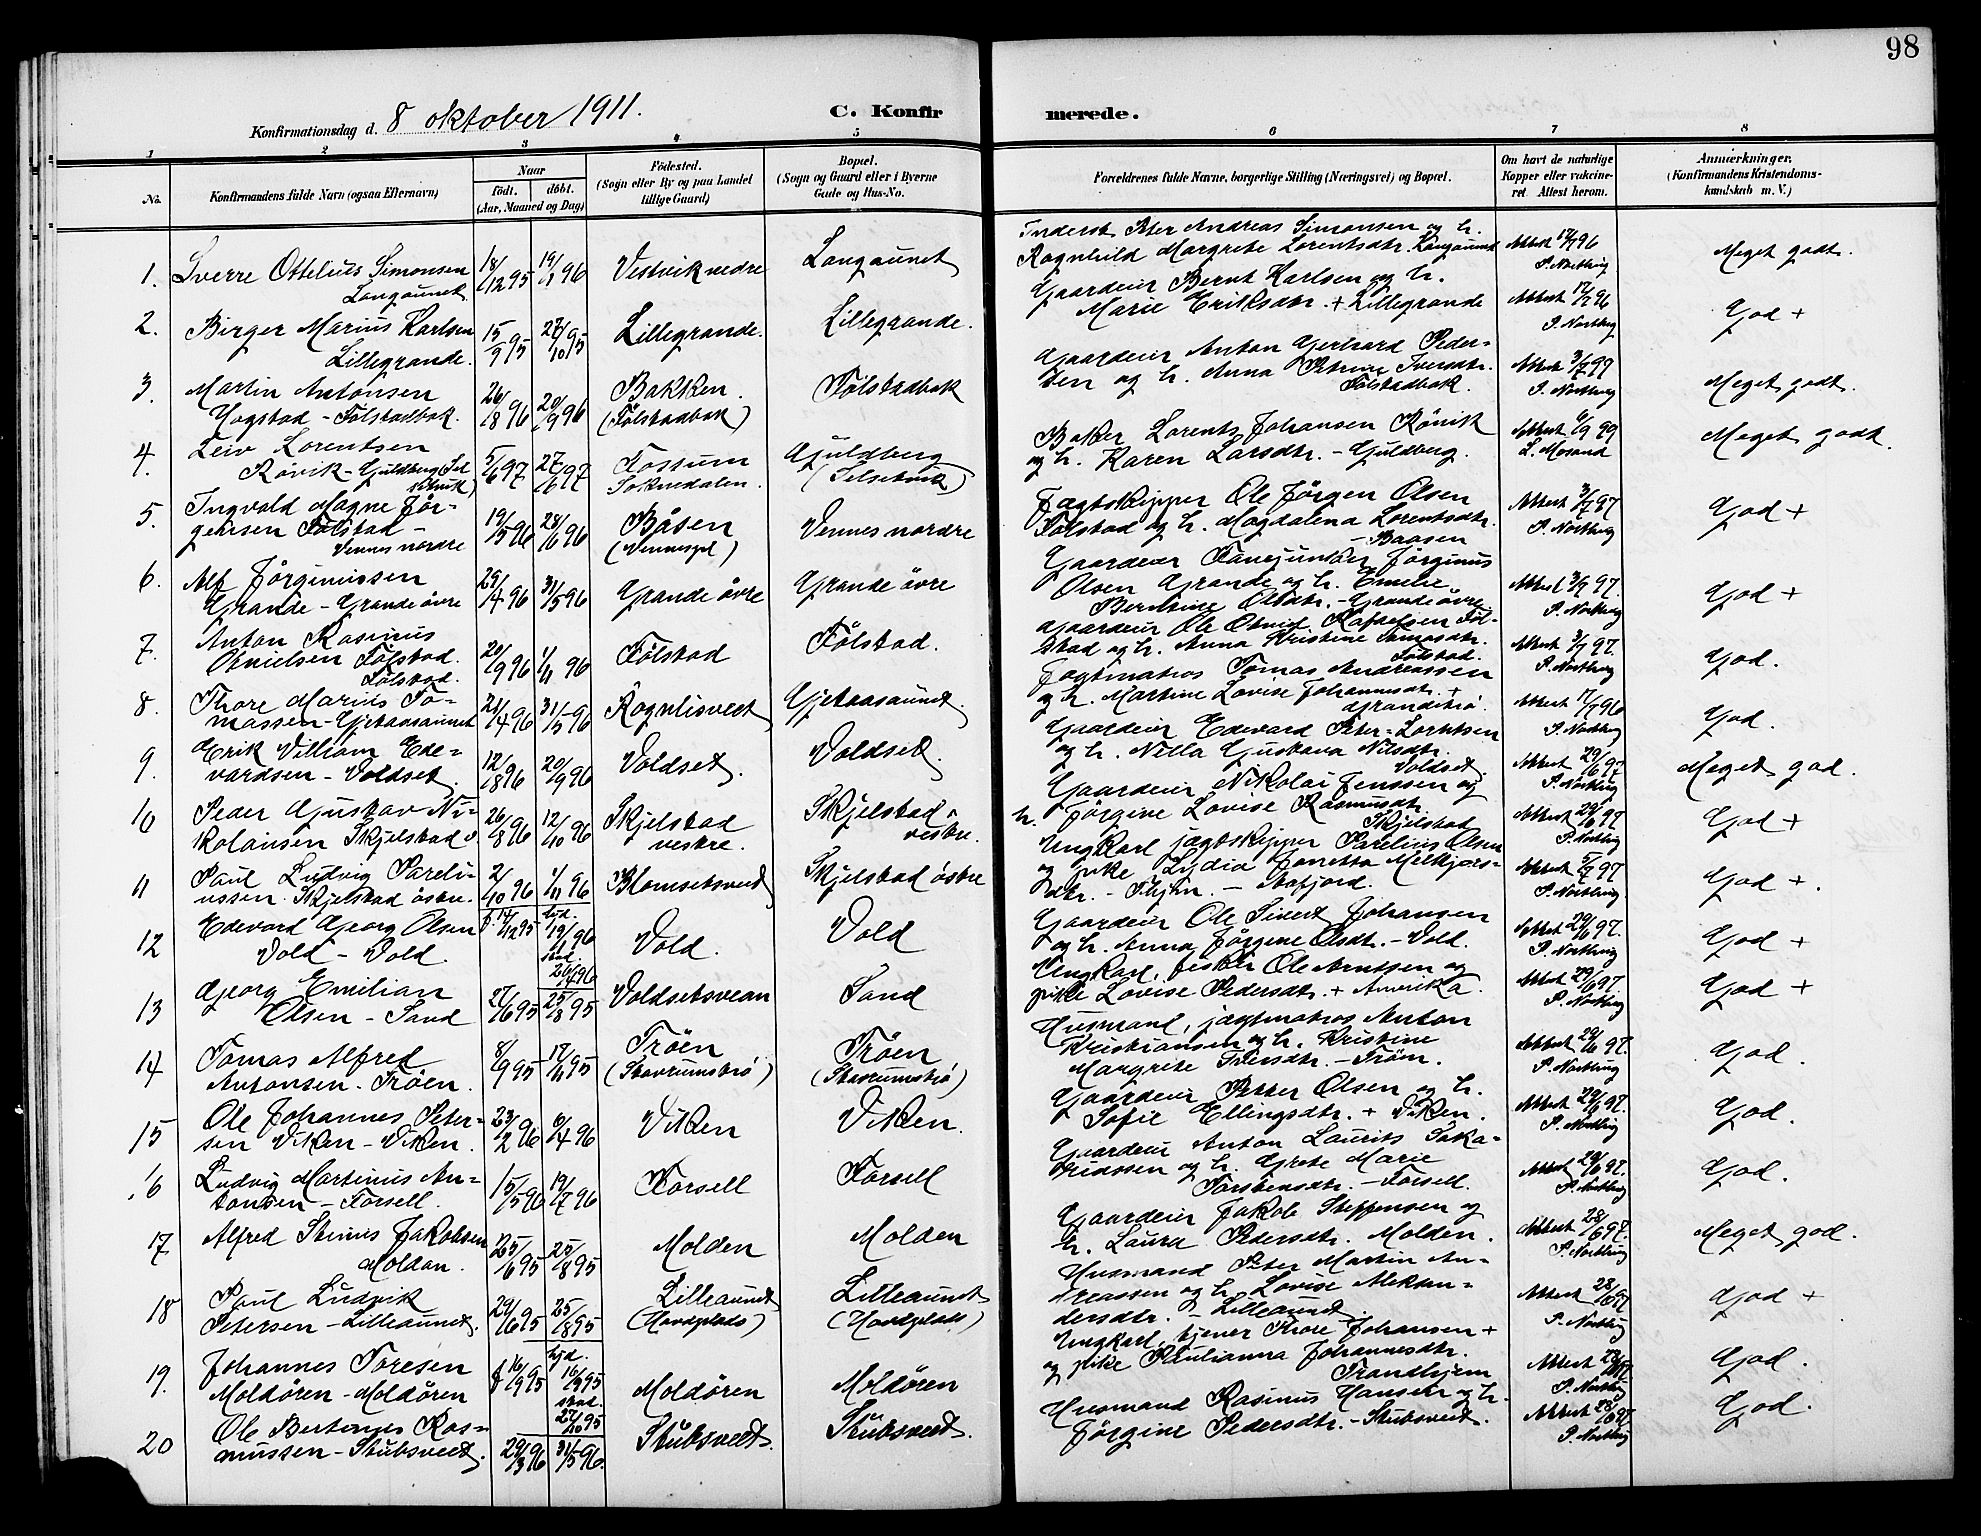 98
Konfirmationsdag d. 8 oktober 1911.
C. Konfirmerede.
1 2 3 4 5 6 7 8
No.
Konfirmandens fulde Navn (ogsaa Efternavn)
Naar
født. døbt.
(Aar, Maaned og Dag)
Fødested.
(Sogn eller By og paa Landet
tillige Gaard)
Bopæl.
(Sogn og Gaard eller i Byerne
Gade og Hus-No.
Forældrenes fulde Navne, borgerlige Stilling (Næringsvei) og Bopæl.
Om havt de naturlige
Kopper eller vakcine-
ret Attest herom.
Anmærkninger.
(Konfirmandens Kristendoms-
kundskab m. V.)
1. Sverre Ottelius Simonsen
Langaunet
18/12 95 19/1 96 Vestvik nedre Langaunet
Inderst Peter Andreas Simonsen og h.
Ragnhild Margrete Lorentsdtr. Langaunet
Attest 96
P. Nortbug
Meget godt.
2. Birger Marius Karlsen
Lillegrande.
15/9 95 27/10 95 Lillegrande. Lillegrande.
Gaardeier Bernt Karlsen og h.
Marie Eriksdtr. + Lillegrande
Attest 96
P. Nortbug
God +
3. Martin Antonsen
Hogstad - Fölstadbak.
26/8 96 20/9 96 Bakken.
(Fölstadbak)
Fölstadbak
Gaardeier Anton Gerhard Peder-
sen og h. Anna Petrine Iversdtr.
Fölstadbak.
Attest 3/7 99
P. Nortbug
Meget godt.
4. Leiv Lorentsen
Rövik - Guldberg
5/6 97 27/6 97 Fossum
Soknedalen.
Guldberg
(Selsetvik)
Baker Lorents Johansen Rönik
og h. Karen Larsdtr. - Guldberg.
Attest 6/9 99
L. Mosand
Meget godt.
5. Ingvald Magne Jör-
gensen Fölstad -
Vennes nordre
19/5 96 28/6 96 Båsen
(Vennespl)
Vennes nordre
Jægtskipper Ole Jörgen Olsen
Fölstad og h. Magdalena Lorentsdtr.
- Baasen
Attest 3/7 97
P. Nortbug
God +
6. Alf Jörginussen
Grande - Grande övre
29/4 96 31/5 96 Grande övre Grande övre
Gaardeier Fanejunker Jörginus
Olsen Grande og h. Emelie
Berntine Olsdtr. - Grande övre
Attest 3/7 97.
P. Nortbug
God +
7. Anton Rasinus
Otnielsen Fölstad.
Fölstad.
20/9 96 1/11 96 Fölstad Fölstad.
Gaardeier Ole Otniel Rafaelsen Föl-
stad og h. Anna Kristine Tomasdtr.
Fölstad.
Attest 3/7 97.
P. Nortbug
God.
8. Thore Marius To-
massen - Gjetaasaunet
21/4 96 31/5 96 Rögnlisveet Gjetaasaunet.
Jægtmatros Tomas Andreassen
og h. Martine Lovise Johannesdtr. +
Granditrö.
Attest 17/7 96
P. Nortbug
God.
9. Erik Villiam Ede-
vardsen - Voldset.
12/8 96 20/9 96 Voldset. Voldset.
Gaardeier Edevard Peter Lorntsen
og h. Nilla Gustava Nilsdtr.
Voldset.
Attest 29/6 97
P. Nortbug
Meget god.
10 Peder Gustav Ni-
kolaisen Skjelstad v.
26/8 96 12/10 96 Skjelstad
vestre.
Skjelstad
vestre.
Gaardeier Nikolai Jenssen og
h. Jörgine Lovise Rasmusdtr.
Skjelstad
Attest 29/6 97.
P. Nortbug
God +
11 Paul Ludvig Pareli-
ussen. Skjelstad östre.
2/10 96 1/11 96 Blomsetsveet Skjelstad östre
Ungkarl jægtskipper Parelius Olsen
og pike Lydia Jonetta Melkjors-
dtr. - - Aafjord.
Attest 97.
P. Nortbug
God +.
12 Edevard Georg Olsen
Vold - Vold.
f. 17/12 95 hjd.
19/1 96
stad.
26/4 96
Vold. Vold
Gaardeier Ole Sivert Johansen
og h. Anna Jörgine Olsdtr. - Vold.
Attest 29/6 97.
P. Nortbug
God +
13 Georg Emilian
Olsen - Sand
27/6 95 25/8 95 Voldsetsvean Sand
Ungkarl, fisker Ole Arntsen og
pike Lovise Pedersdtr. + Amerika.
Attest 29/6 97.
P. Nortbug
God +
14 Tomas Alfred
Antonsen - Tröen.
8/9 95 17/11 95 Tröen
(Stavrumströ)
Tröen
(Stavrumströ)
Husmand, jægtmatros Anton
Kristiansen og h. Kristine
Margrete Petersdtr. - Tröen.
Attest 29/6 97.
P. Nortbug
God.
15 Ole Johannes Peter-
sen Viken - Viken.
23/2 96 6/4 96 Viken Viken.
Gaardeier Petter Olsen og h.
Sofie Ellingsdtr. + Viken.
Attest 29/6 97.
P. Nortbug
God.
16 Ludvig Martinus An-
tonsen - Forsell.
15/5 96 19/7 96 Forsell Forsell
Gaardeier Anton Laurits Saka-
riassen og h. Grete Marie
Torstensdtr. - Forsell.
Attest 29/6 97.
P. Nortbug
God.
17 Alfred Stinus Jakobsen
Moldan.
25/6 95 25/8 95 Molden Molden
Gaardeier Jakob Steffensen og
h. Laura Pedersdtr. Molden.
Attest 28/6 97.
P. Nortbug
Meget god.
18 Paul Ludvik
Petersen - Lilleaunet.
29/6 95 25/8 95 Lilleaunet
(Havdplads)
Lilleaunet
(Havdplads)
Husmand Peter Martin An-
dreassen og h. Lovise Aleksan-
dersdtr. - Lilleaunet.
Attest 28/6 97
P. Nortbug
God +
19. Johannes Toresen
Moldören - Moldören
f 16/9 95 hjd.
16/9 95
stad.
27/10 95
Moldören Moldören
Ungkarl, tjener Thore Johansen +
og pike Paulianna Johannesdtr.
Trondhjem
Attest
P. Nortbug
God.
20 Ole Bertinus Ras-
mussen - Stubsveet.
29/3 96 31/5 96. Stubsveet. Stubsveet.
Husmand Rasinus Hansen og h.
Jörgine Pedersdtr. - Stubsveet.
Attest 28/6 97.
P. Nortbug
God.